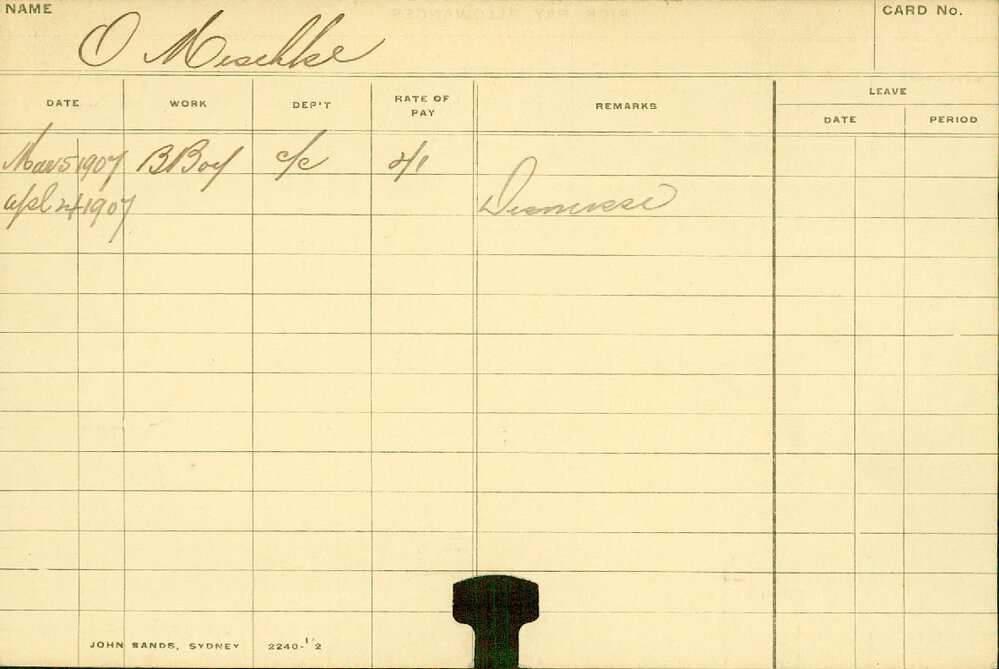 NAME
O Meschke
CARD No.
DATE WORK DEP'T RATE OF PAY REMARKS LEAVE
DATE PERIOD
Mar 5 1907 B Boy c/c
Apl 24 1907
JOHN SANDS, SYDNEY 2240-1/2